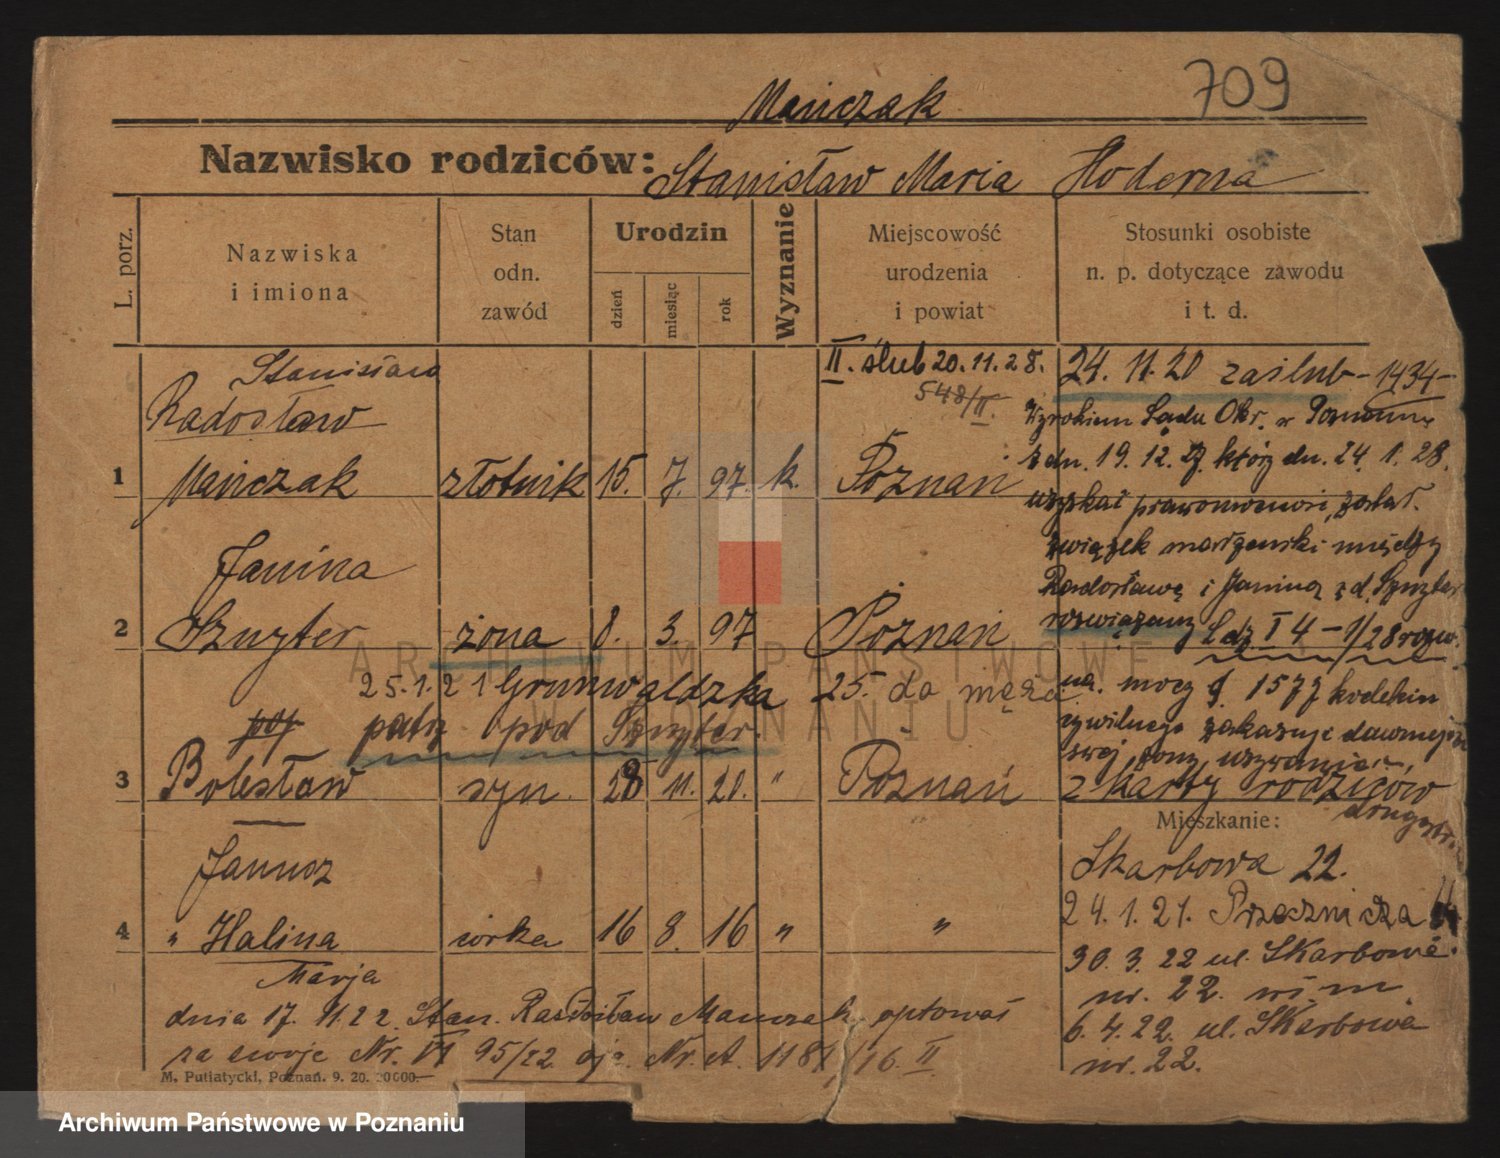 709
Mańczak
Nazwisko rodziców: Stanisław Maria Hoderna
L. porz.
Nazwiska
i imiona
Stan
odn.
zawód
Urodzin
dzień
miesiąc
rok
Wyznanie
Miejscowość
urodzenia
i powiat
Stosunki osobiste
n. p. dotyczące zawodu
i t. d.
Stanisław
Radosław
1 Mańczak złotnik 15. 7. 97. k. Poznań
II. ślub 20.11.28.
548/II.
24. 11. 20 zaślub – 1434 –
Wyrokiem Sądu Okr. w Poznaniu
z dn. 19. 12. 27 który dn. 24. 1. 28.
uzyskał prawomocność, został
związek małżeński między
Radosławem i Janiną z d. Sznyter
rozwiązany Ldz I 4 – 1/28 rozw.
Janina
2 Sznyter żona 8. 3. 97 Poznań
25.1.21 Grunwaldzka 25. do męża
patrz pod Sznyter.
na mocy § 1577 kodeksu
cywilnego zakazuje dawniejszej
swej żony
z karty rodziców
3 Bolesław syn. 28 11. 20. " Poznań
Janusz
4 " Halina córka 16 8. 16 " "
Marja
Mieszkanie:
Skarbowa 22.
24. 1. 21. Przecznicza
30. 3. 22 ul. Skarbowa
nr. 22.
6. 4. 22. ul. Skarbowa
nr. 22.
dnia 17. 11. 22. Stan. Radosław Mańczak optował
za swoje Nr. VI 95/22 Nr. A. 1181/16 II.
M. Putiatycki, Poznań. 9. 20. 20000.
ARCHIWUM PAŃSTWOWE
W POZNANIU
Archiwum Państwowe w Poznaniu